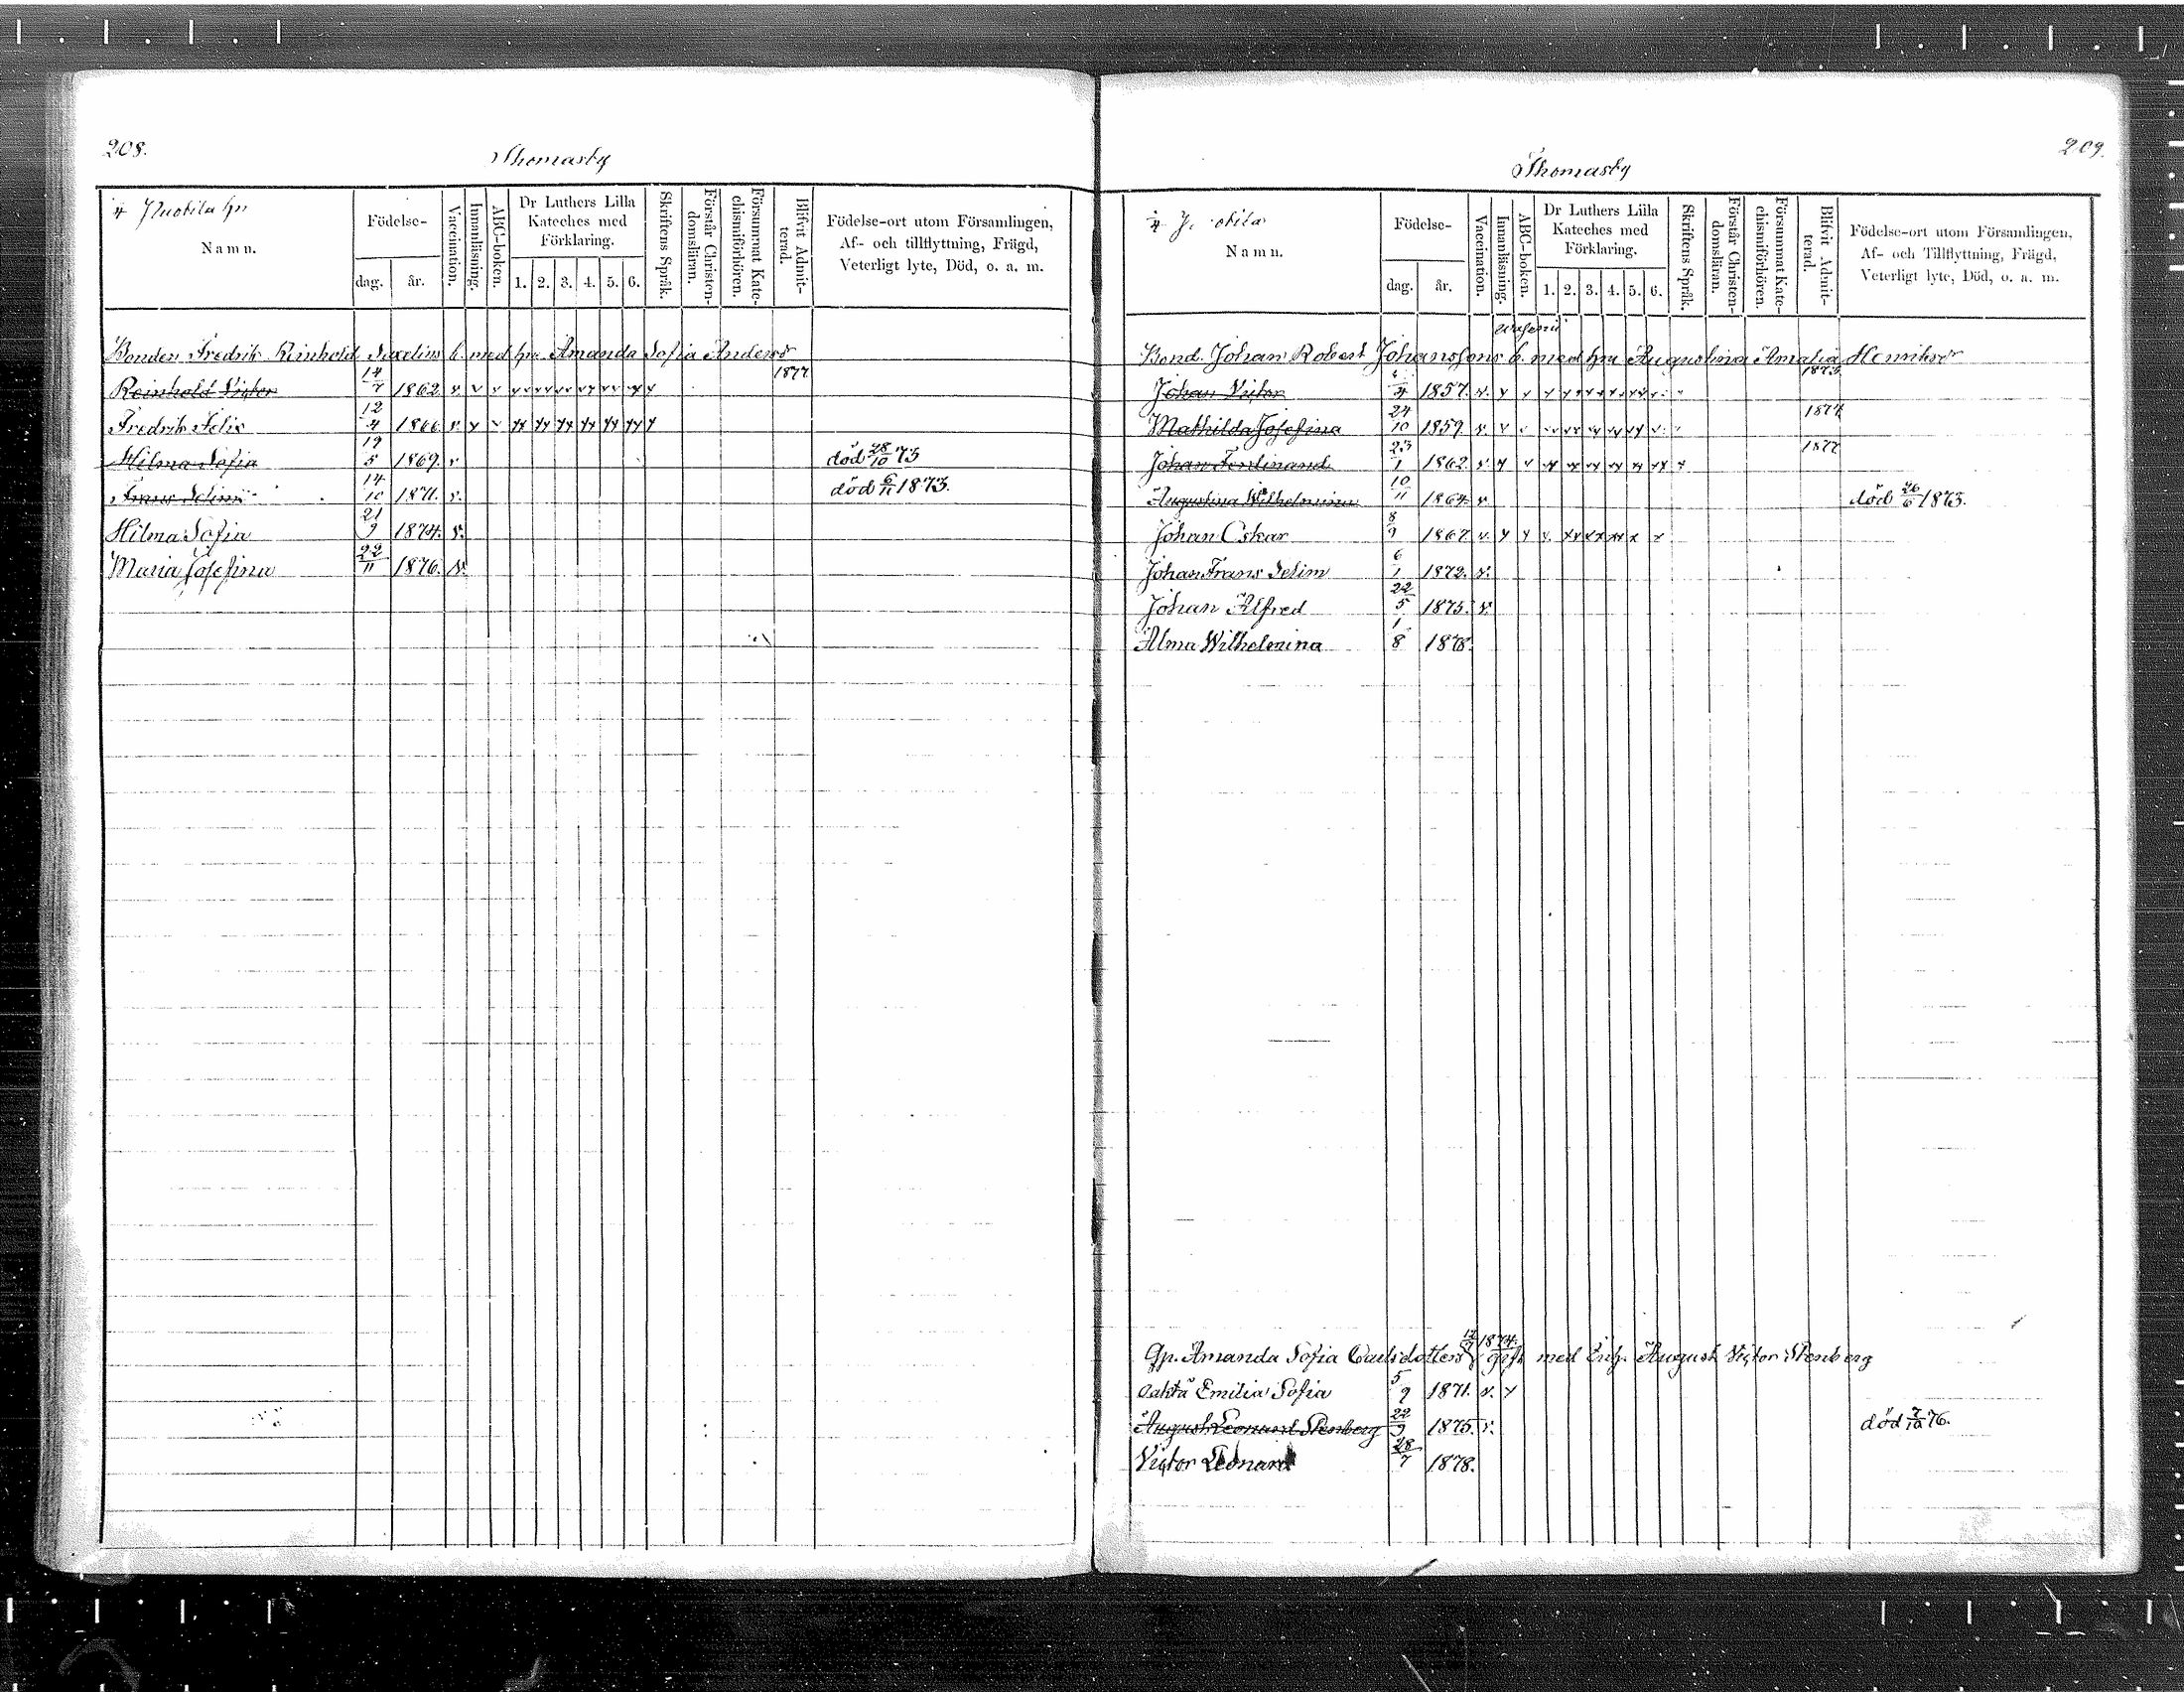 208.
Thomasby
Namn.
Födelse-
dag.
år.
Vaccination.
Innanläsning.
ABC-boken.
Dr Luthers Lilla
Kateches med
Förklaring.
1. 2. 3. 4. 5. 6.
Skriftens Språk.
Förstår Christen-
domsläran.
Försummat Kate-
chismiförhören.
Blifvit Admit-
terad.
Födelse-ort utom Församlingen,
Af- och tillflyttning, Frägd,
Veterligt lyte, Död, o. a. m.
Bonden Fredrik Reinhold b. med hu Amanda Sofia Anders
Reinhold Victor 14/7 1862. v. 1877
Fredrik Felix 12/4 1866. v.
Hilma Sofia 19/5 1869. v. död 28/10 73
Frans Selim 14/10 1871. v. död 6/11 1873.
Hilma Sofia 21/9 1874. v.
Maria Josefina 22/11 1876. v.
209.
Thomasby
Namn.
Födelse-
dag.
år.
Vaccination.
Innanläsning.
ABC-boken.
Dr Luthers Lilla
Kateches med
Förklaring.
1. 2. 3. 4. 5. 6.
Skriftens Språk.
Förstår Christen-
domsläran.
Försummat Kate-
chismiförhören.
Blifvit Admit-
terad.
Födelse-ort utom Församlingen,
Af- och Tillflyttning, Frägd,
Veterligt lyte, Död, o. a. m.
Bond. Johan Robert Johanssons b. med hu Augustina Amalia Henriksdr
Johan Victor 1857. v. 1873
Mathilda Josefina 24/10 1859. v. 1874
Johan Ferdinand 23/1 1862. v. 1877
Augustina Wilhelmina 10/11 1864. v. död 26/6 1873.
Johan Oskar 8/9 1867. v.
Johan Frans Selim 6/1 1872. v.
Johan Alfred 22/5 1875. v.
Alma Wilhelmina 1/8 1878.
Gp. Amanda Sofia Carlsdotters 1874. gift med Enk. August Victor Stenberg
oäkta Emilia Sofia 5/9 1871. v.
August Leonard Stenberg 22/9 1875. v. död 7/10 76.
Victor Leonard 28/7 1878.